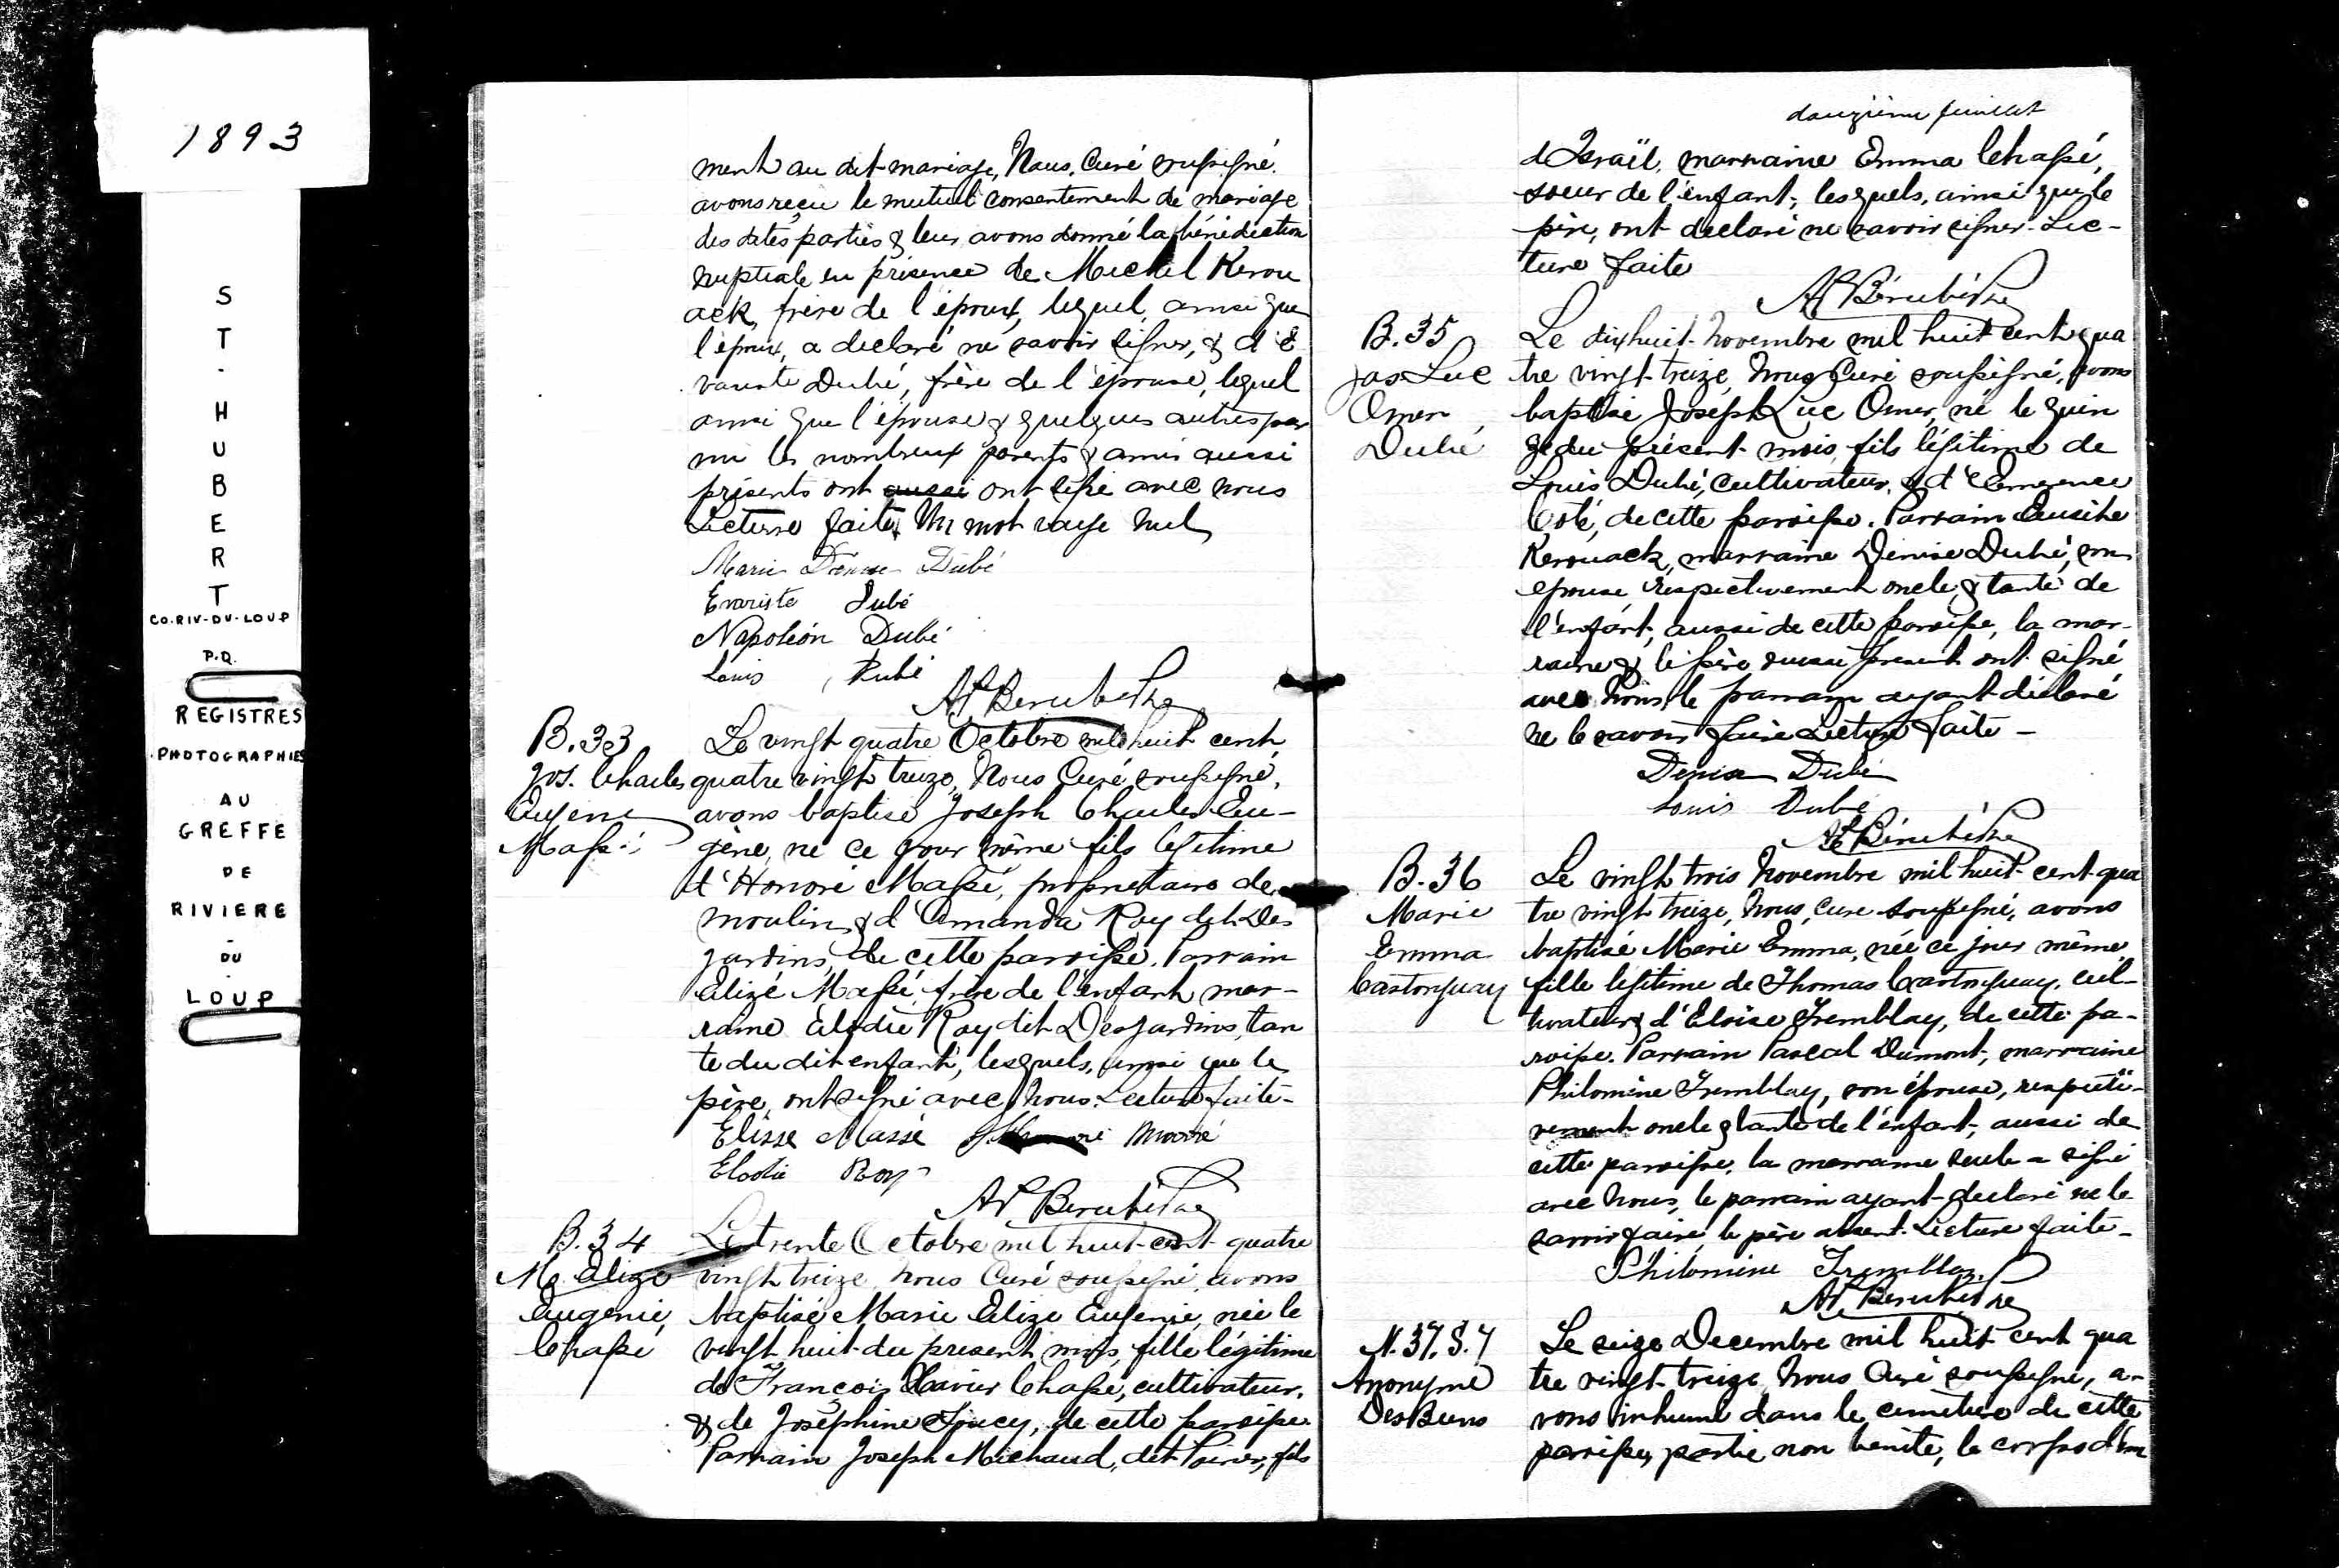 1893
ST-HUBERT
CO-RIV-DU-LOUP
P.Q.
REGISTRES
PHOTOGRAPHIES
AU
GREFFE
DE
RIVIERE
-
DU
-
LOUP
ment au dit mariage, Nous, Curé soussigné
avons reçu le mutuel consentement de mariage
des dites parties & leur avons donné la bénédiction
nuptiale en présence de Michel Kerou
ack, frère de l'époux, lequel, ainsi que
l'époux, a déclaré ne savoir signer, & d'E
variste Dubé, frère de l'épouse, lequel
ainsi que l'épouse & quelques autres par
mi les nombreux parents & amis aussi
présents ont aussi ont signé avec nous
Lecture faite. Un mot rayé nul
Marie Denise Dubé
Evariste Dubé
Napoléon Dubé
Louis Dubé
Bérubé Ptre
B.33
Jos. Charles
Eugène
Massé
Le vingt quatre Octobre mil huit cent
quatre vingt treize, Nous Curé soussigné,
avons baptisé Joseph Charles Eu-
gène, né ce jour même fils légitime
d'Honoré Massé, propriétaire de
moulin, & d'Amanda Roy dit Des
jardins, de cette paroisse. Parrain
Elizé Massé, frère de l'enfant mar-
raine Elodie Roy dit Desjardins, tan
te du dit enfant, lesquels, ainsi que le
père, ont signé avec Nous. Lecture faite-
Elisse Massé
Elodie Roy
Bérubé Ptre
B.34
Me Elize
Eugénie
Chassé
Le trente Octobre mil huit-cent quatre
vingt treize, nous Curé soussigné, avons
baptisé Marie Elize Eugénie, née le
vingt huit du présent mois, fille légitime
de François Xavier Chassé, cultivateur,
& de Joséphine Soucy, de cette paroisse.
Parrain Joseph Michaud, dit Poirier, fils
douzième feuillet
d'Israël, marraine Emma Chassé,
soeur de l'enfant, lesquels, ainsi que le
père, ont déclaré ne savoir signer. Lec-
ture faite
Bérubé Ptre
B.35
Jos Luc
Omer
Dubé
Le dix huit Novembre mil huit cent qua
tre vingt-treize, Nous Curé soussigné, avons
baptisé Joseph Luc Omer, né le quin
ze du présent mois, fils légitime de
Louis Dubé, cultivateur, & d'Emerence
Coté, de cette paroisse. Parrain Eusèbe
Kerouack, marraine Denise Dubé, son
épouse respectivement oncle & tante de
l'enfant, aussi de cette paroisse, la mar-
raine & le père aussi présent ont signé
avec Nous, le parrain ayant déclaré
ne le savoir faire Lecture faite -
Denise Dubé
Louis Dubé
Bérubé Ptre
B.36
Marie
Emma
Castonguay
Le vingt trois Novembre mil huit cent qua
tre vingt treize, Nous, Curé soussigné, avons
baptisé Marie Emma, née ce jour même
fille légitime de Thomas Castonguay, cul-
tivateur & d'Eloïse Tremblay, de cette pa-
roisse. Parrain Pascal Dumont, marraine
Philomène Tremblay, son épouse, respecti-
vement oncle & tante de l'enfant, aussi de
cette paroisse, la marraine seule a signé
avec Nous, le parrain ayant déclaré ne le
savoir faire, le père absent. Lecture faite -
Philomène Tremblay
Bérubé Ptre
N.37.S.7
Anonyme
DesBiens
Le seize Decembre mil huit cent qua
tre vingt-treize, Nous Curé soussigné, a-
vons inhumé dans le cimetière de cette
paroisse, partie non bénite, le corps d'un